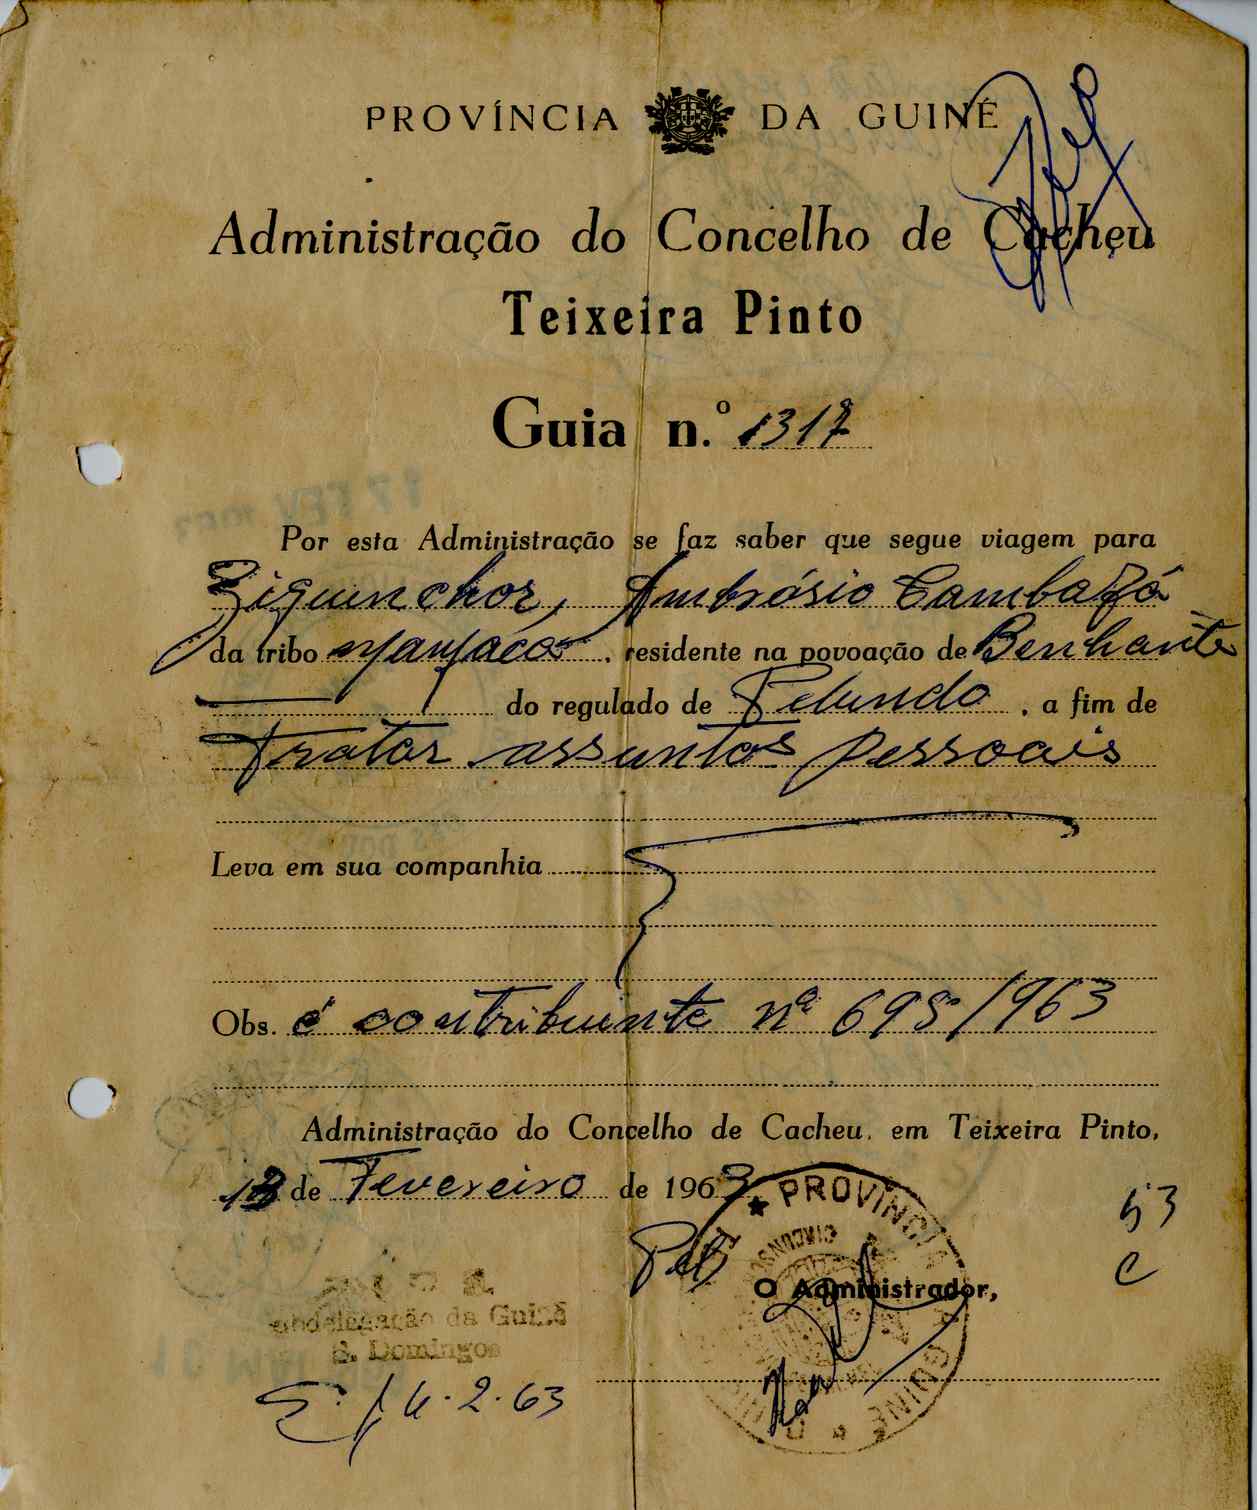 PROVÍNCIA DA GUINÉ
Administração do Concelho de Cacheu
Teixeira Pinto
Guia n.º 1317
Por esta Administração se faz saber que segue viagem para
Ziguinchor, Ambrósio Cambafá
da tribo manjaco, residente na povoação de Benhante
do regulado de Pelundo, a fim de
tratar assuntos pessoais
Leva em sua companhia
Obs. é contribuinte nº 698/963
Administração do Concelho de Cacheu, em Teixeira Pinto,
13 de Fevereiro de 1963
PROVÍNCIA DA GUINÉ
53
C
O Administrador,
Subdelegação da Guiné
S. Domingos
E. 14.2.63
17 FEV 1963